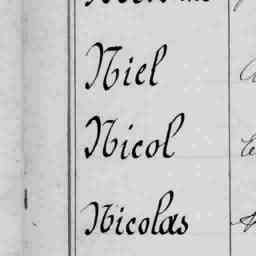 Niel
Nicol
Nicolas